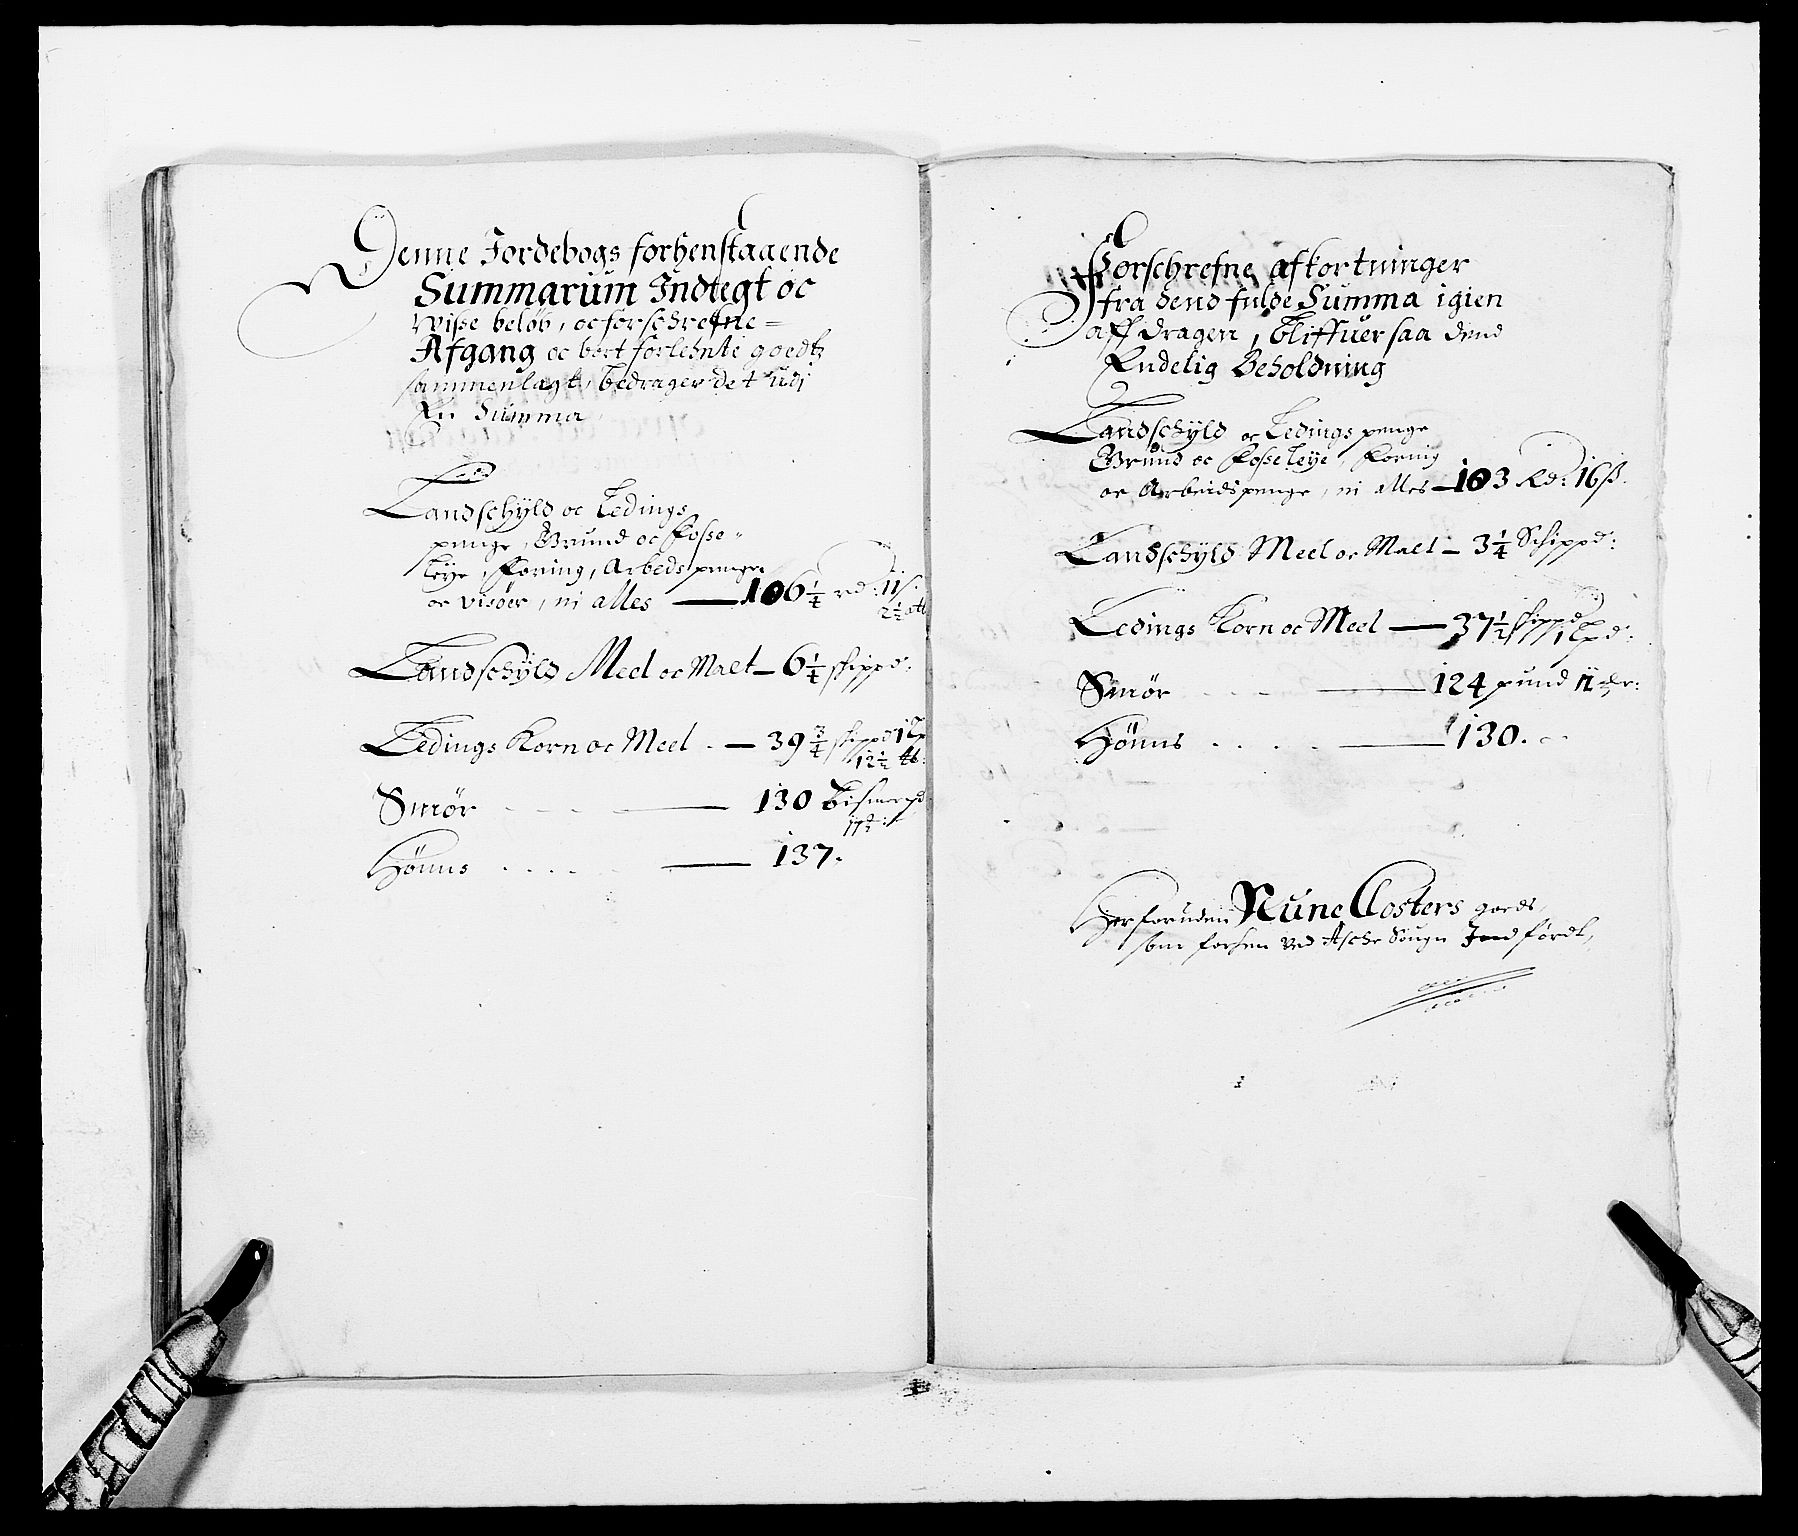 Denne Jordebogs forhenstaaende
Summarum Indtegt oc
wiße beløb, oc forschrefne=
Afgang oc bort forlehnte goedtz
sammenlagt, bedrager det udj
En Summa
Landschyld oc Ledings
penge, Grund oc Fosse-
leye, Foring, Arbeds penge
oc visøer, ni alles — 106 1/4 rd: 11 s:
2 1/2 alb
Landschyld Meel oc Malt — 6 1/4 schippd:
Ledings Korn oc Meel . — 39 3/4 schippd 1 Lp
12 1/2 lb:
Smør - - - — 130 Bismerpd
Hønns . . . . — 137.
Forschrefne afkortninger
fra dend fulde Summa igien
aff dragen, bliffuer saa dend
Endelig Beholdning
Landschyld oc Ledings penge
Grund oc Fosse leye, Foring
oc Arbeidspenge, ni alles — 103 Rd: 16 ß.
Landschyld Meel oc Malt — 3 1/4 Schippd:
Ledings Korn oc Meel — 37 1/2 schippd
1 Lpd:
Smør - - - — 124 pund 11
Hønns . . . . — 130. -
Herforuden Nune Closters goeds,
som forhen ved Asche Sougn Indførdt,